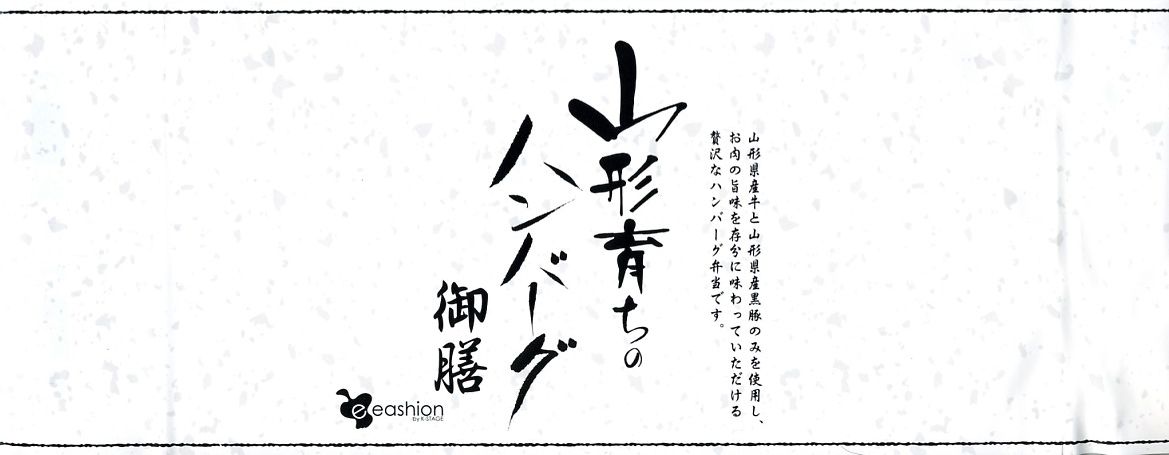 山形県産牛と山形県産黒豚のみを使用し、
お肉の旨味を存分に味わっていただける
贅沢なハンバーグ弁当です。
山形育ちの
ハンバーグ
御膳
e eashion
by K-STAGE